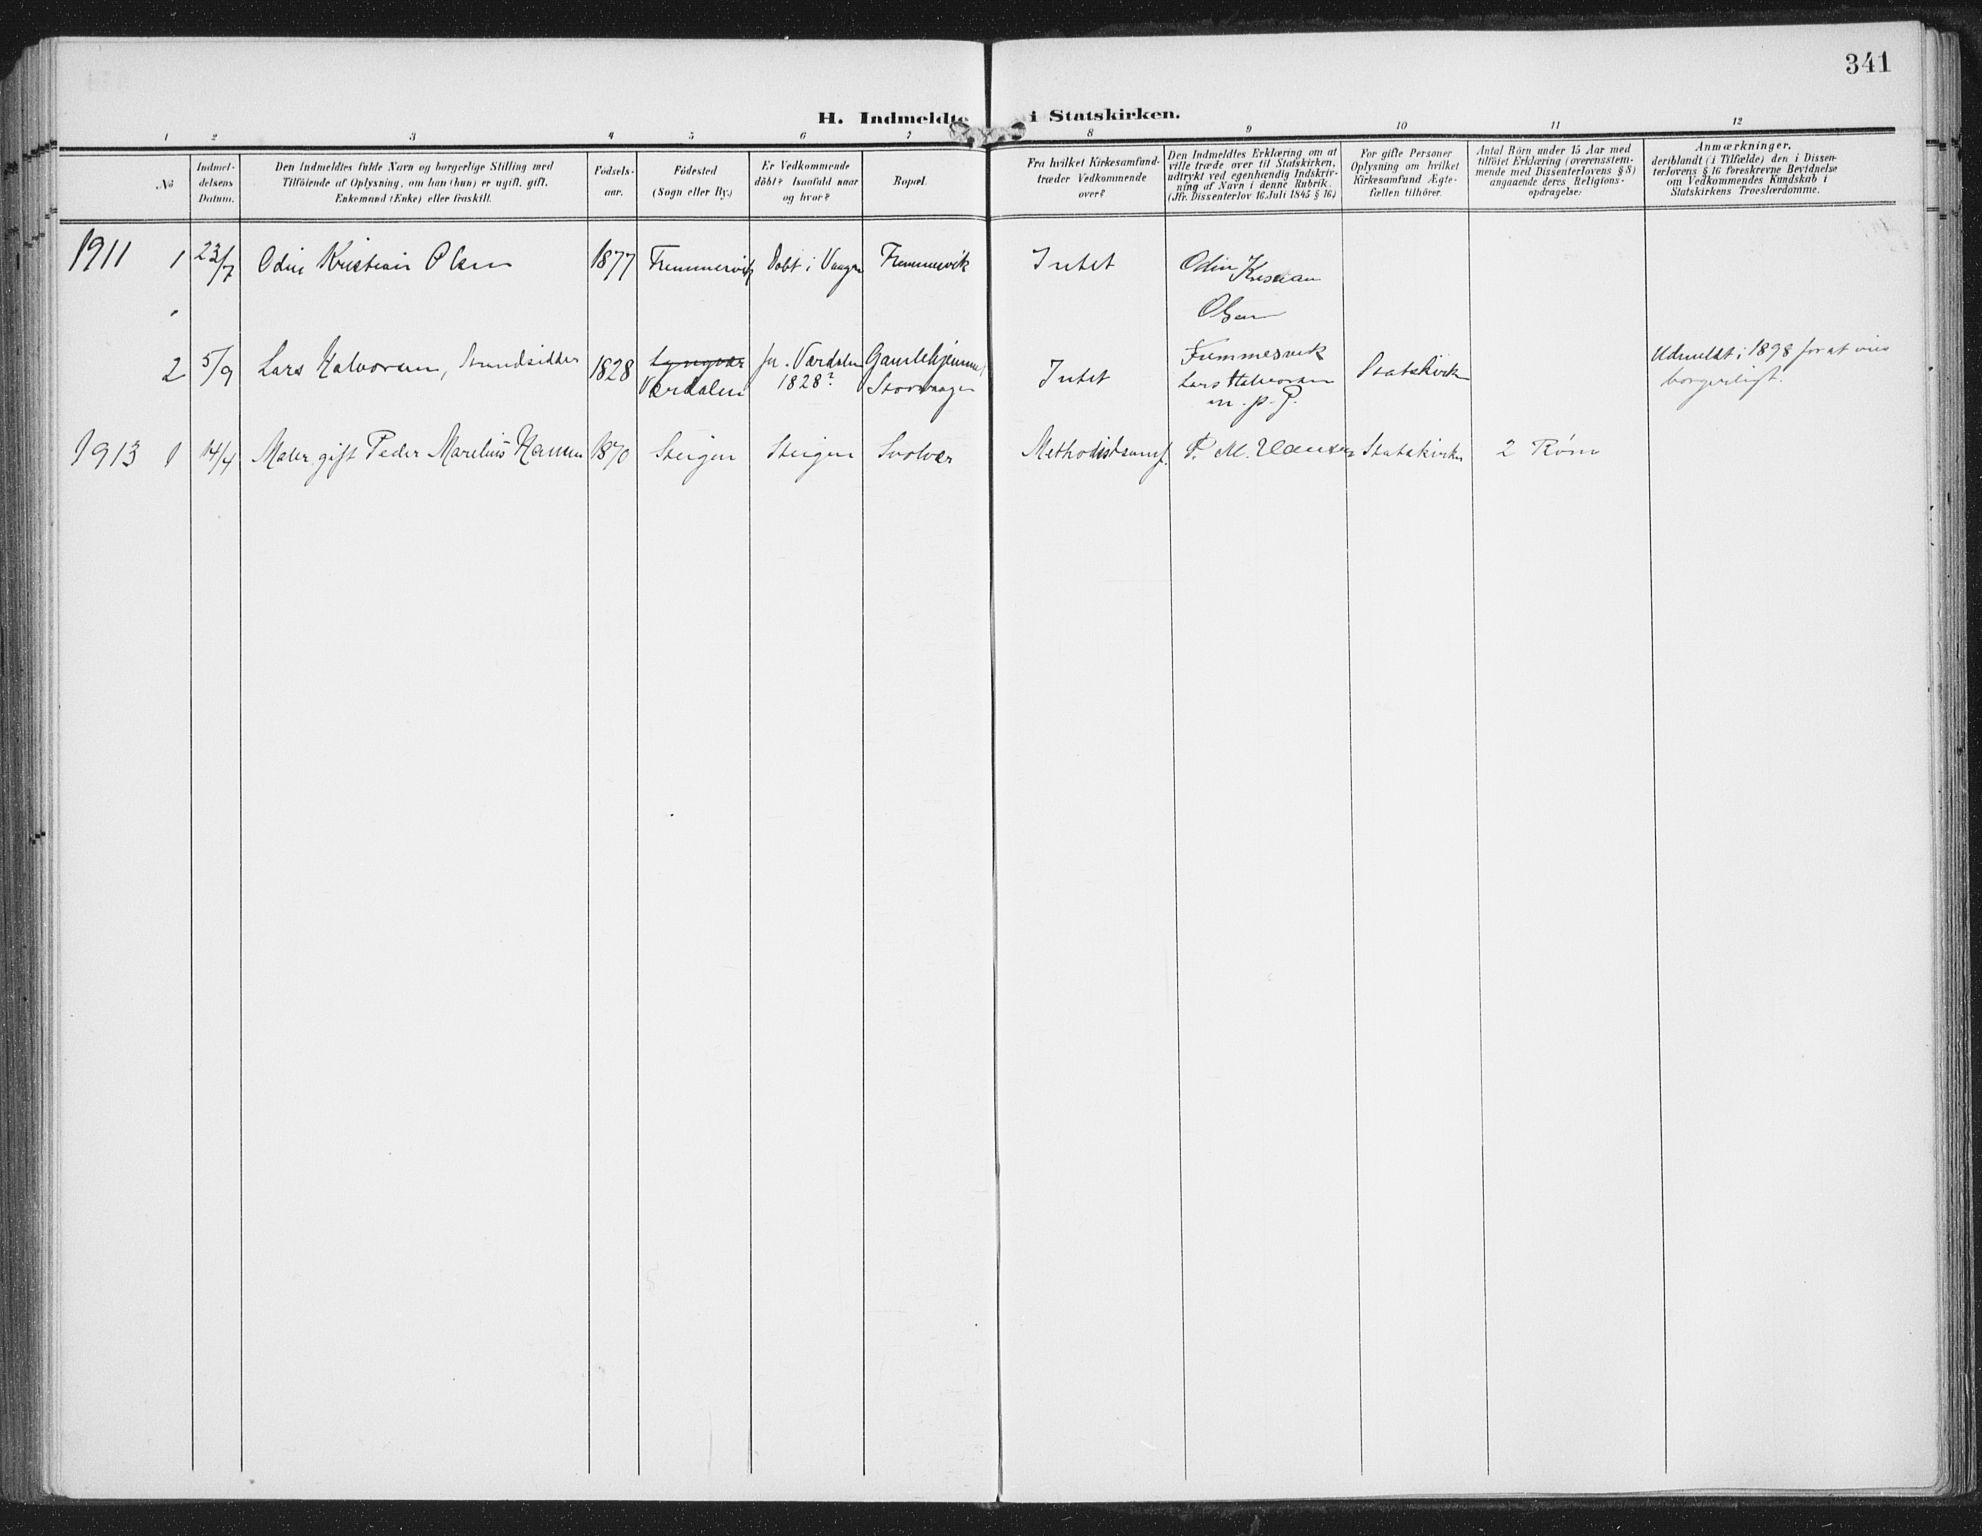 341
H. Indmeldte i Statskirken.
1 2 3 4 5 6 7 8 9 10 11 12
No
Indmel-
delsens
Datum.
Den Indmeldtes fulde Navn og borgerlige Stilling med
Tilföiende af Oplysning, om han (hun) er ugift, gift,
Enkemand (Enke) eller fraskilt.
Födsels-
aar.
Födested
(Sogn eller By.)
Er Vedkommende
döbt? Isaafald naar
og hvor?
Bopæl.
Fra hvilket Kirkesamfund
træder Vedkommende
over?
Den Indmeldtes Erklæring om at
ville træde over til Statskirken,
udtrykt ved egenhændig Indskriv-
ning af Navn i denne Rubrik.
(Jfr. Dissenterlov 16 Juli 1845 § 16)
For gifte Personer
Oplysning om hvilket
Kirkesamfund Ægte-
fællen tilhörer.
Antal Börn under 15 Aar med
tilföiet Erklæring (overensstem-
mende med Dissenterlovens § 8)
angaaende deres Religions-
opdragelse.
Anmærkninger,
deriblandt (i Tilfælde) den i Dissen-
terlovens § 16 foreskrevne Bevidnelse
om Vedkommendes Kundskab i
Statskirkens Troeslærdomme.
1911 1 23/7 Odin Kristian Olsen 1877 Fremmersvik Døbt i Vaagan Fremmesvik Intet Odin Kristian
Olsen
Fremmesvik
2 5/9 Lars Halvorsen, 1828 Værdalen Værdalen
1828? Gamlehjemmet
Storvaagen Intet Lars Halvorsen
m. p. P. Statskirken Udmeldt i 1898 for at vies
borgerligt.
1913 1 14/4 Maler gift Peder Marelius Hansen 1870 Steigen Steigen Svolvær Methodistsamf. P. M. Hansen Statskirken 2 Børn